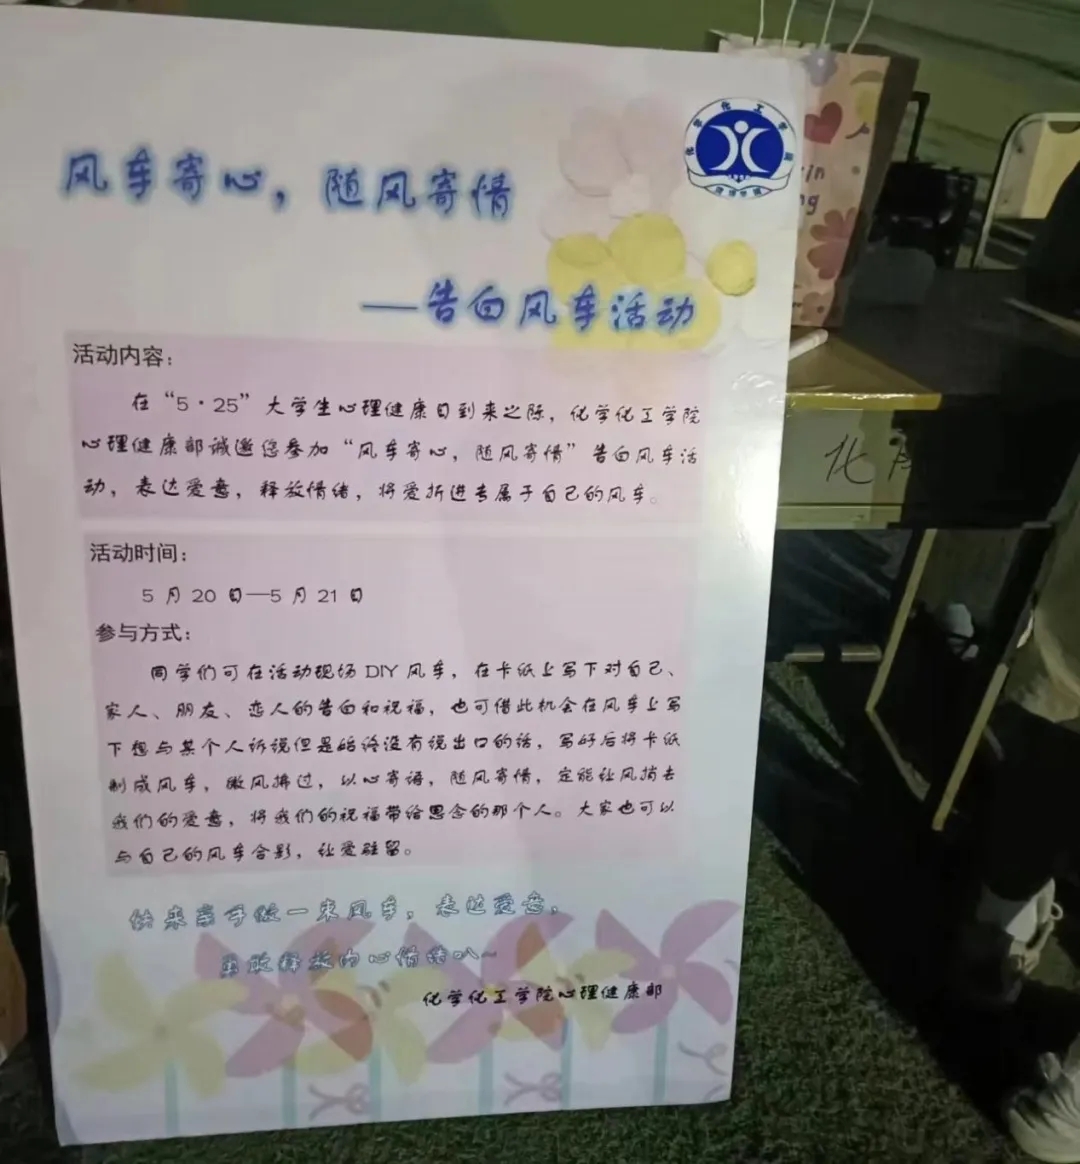 风车寄心，随风寄情
——告白风车活动
化学化工学院
活动内容：
在“5·25”大学生心理健康日到来之际，化学化工学院
心理健康部诚邀您参加“风车寄心，随风寄情”告白风车活
动，表达爱意，释放情绪，将爱折进专属于自己的风车。
活动时间：
5月20日—5月21日
参与方式：
同学们可在活动现场DIY风车，在卡纸上写下对自己、
家人、朋友、恋人的告白和祝福，也可借此机会在风车上写
下想与某个人诉说但是始终没有说出口的话，写好后将卡纸
制成风车，微风拂过，以心寄语，随风寄情，定能让风捎去
我们的爱意，将我们的祝福带给思念的那个人。大家也可以
与自己的风车合影，让爱驻留。
快来亲手做一束风车，表达爱意，
勇敢释放内心情绪叭~
化学化工学院心理健康部
化